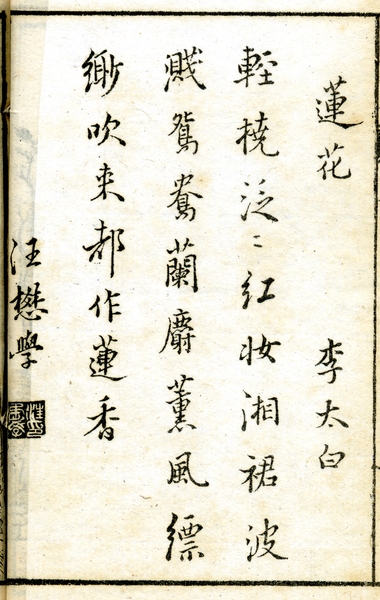 蓮花 李太白
輕橈泛〻紅妆湘裙波
濺鴛鴦蘭麝薰風縹
緲吹来都作蓮香
汪懋學